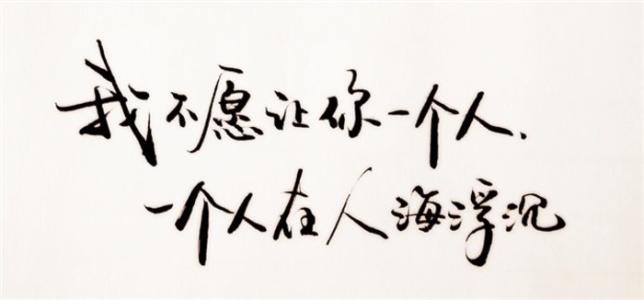 我不愿让你一个人，
一个人在人海浮沉